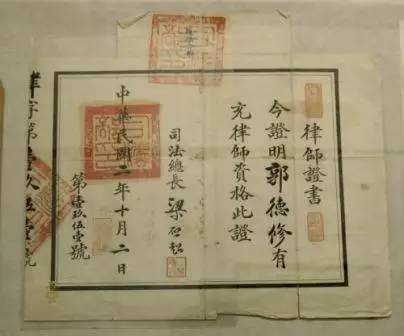 律師證書
今證明郭德修有
充律師資格此證
司法總長梁啓超
中華民國二年十月二日
第壹玖伍壹號
律字第壹玖伍壹號